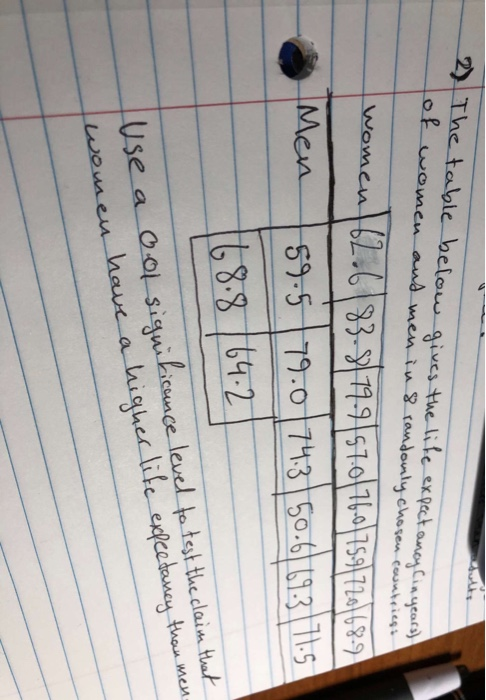 2) The table below gives the life expectancy (in years)
of women and men in 8 randomly chosen countries.
women | 62.6 | 83.8 | 79.9 | 57.0 | 76.0 | 75.9 | 72.0 | 68.9
Men 59.5 | 79.0 | 74.3 | 50.6 | 69.3 | 71.5
68.8 | 64.2
Use a 0.01 significance level to test the claim that
women have a higher life expectancy than men.